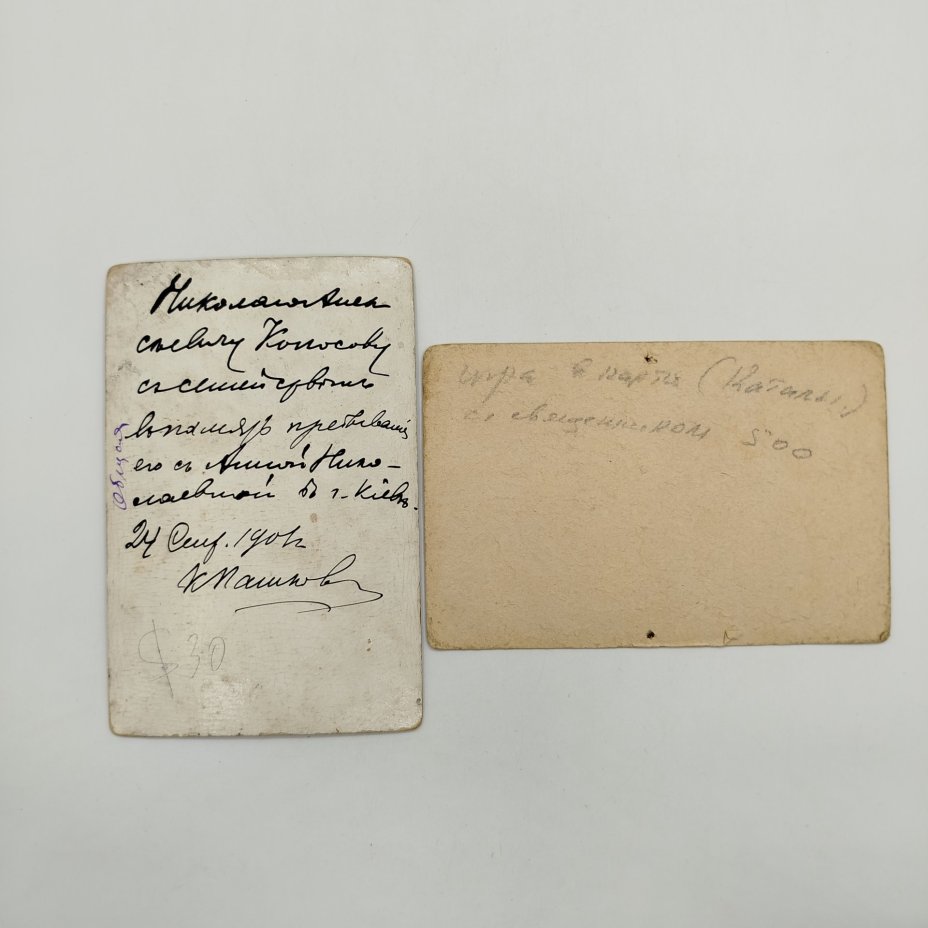 Николаю Алек
сѣевичу Колосову
съ семействомъ
въ память пребыванія
его съ Анной Нико-
лаевной въ г. Кіевѣ.
24 Сент. 190
К Пашков
Общая
$30
игра в карты (Каталы)
с священником 500